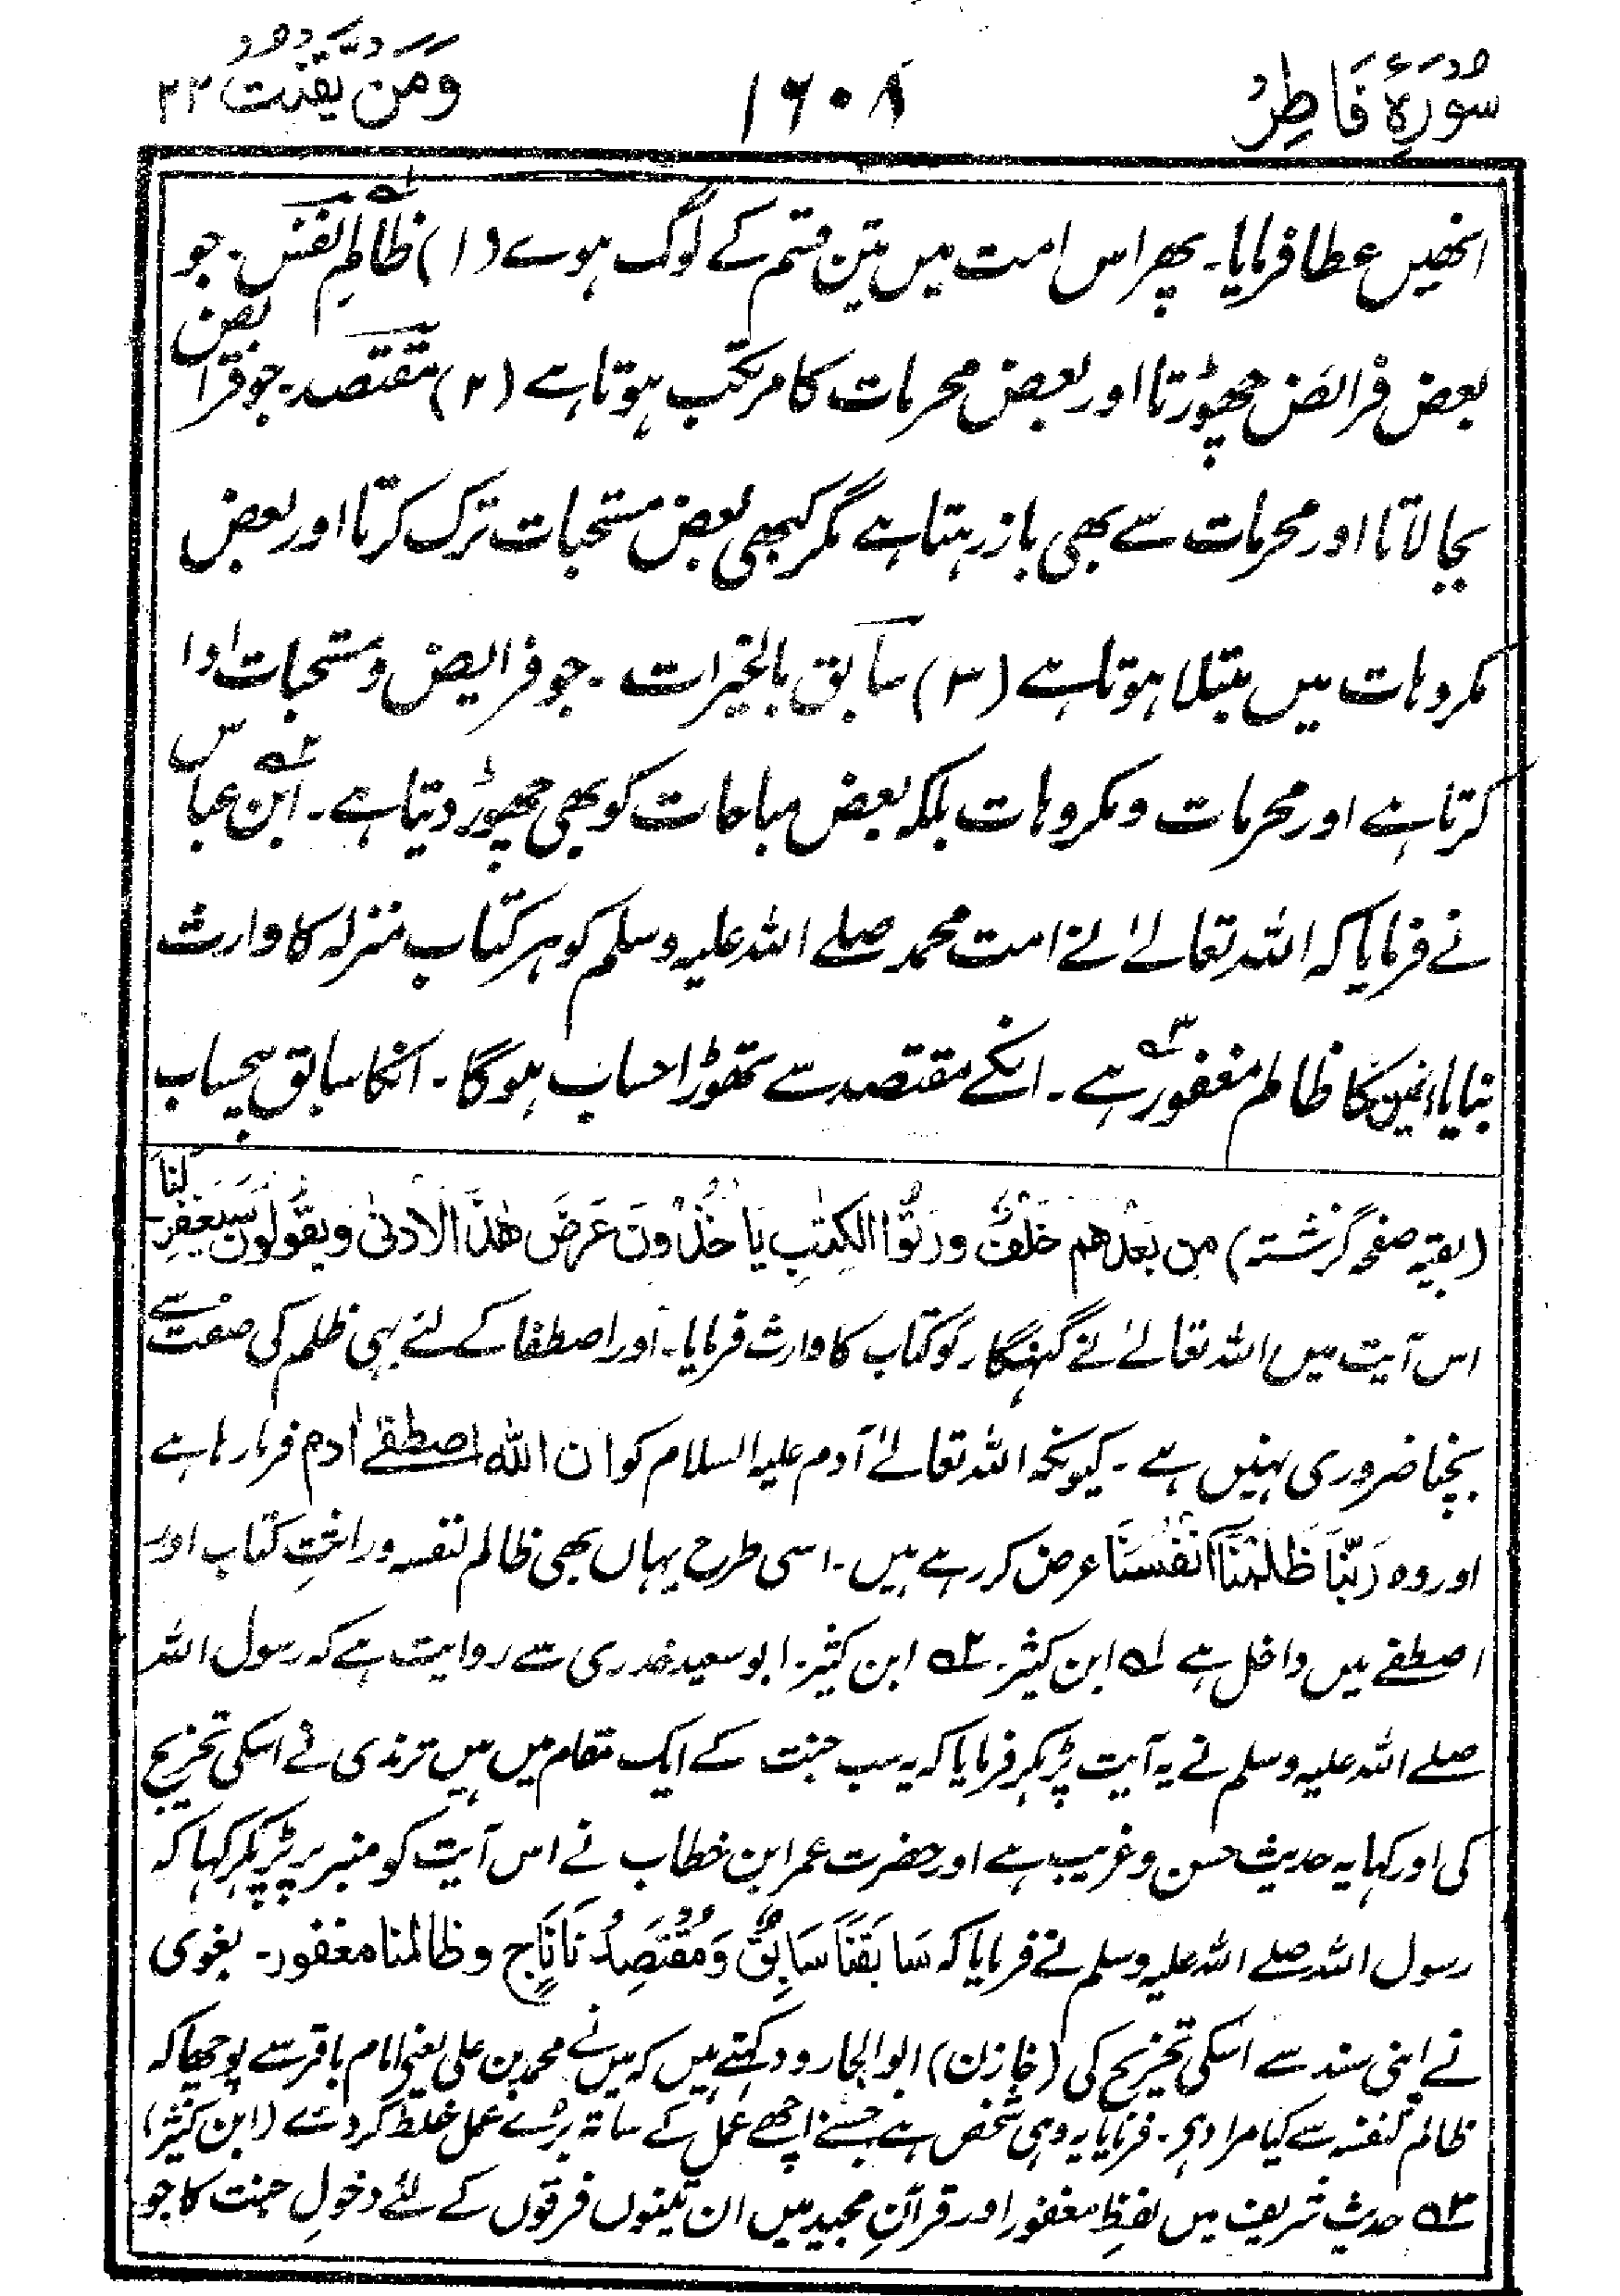 سُورَۂ فَاطِرُ
۱۶۰۸
وَمَن یَّقنُت ۲۲
انھیں عطا فرمایا۔ پھر اس امت میں تین قسم کے لوگ ہوے (۱) ظالم لنفس۔ جو
بعض فرائض چھوڑتا اور بعض محرمات کا مرتکب ہوتا ہے (۲) مقتصد۔ جو فرائض
بجا لاتا اور محرمات سے بھی باز رہتا ہے مگر کبھی بعض مستحبات ترک کرتا اور بعض
مکروہات میں مبتلا ہوتا ہے (۳) سابق بالخیرات۔ جو فرایض و مستحبات ادا
کرتا ہے اور محرمات و مکروہات بلکہ بعض مباحات کو بھی چھوڑ دیتا ہے۔ ابن عباس ۲؎
نے فرمایا کہ اللہ تعالےٰ نے امت محمد صلے اللہ علیہ وسلم کو ہر کتاب منزلہ کا وارث
بنایا انمیں کا ظالم مغفور ۳؎ ہے۔ انکے مقتصد سے تھوڑا حساب ہوگا۔ انکا سابق بیحساب
(بقیہ صفحہ گزشتہ) مِن بَعْدِهِم خَلْفٌ وَرِثُوا الکِتٰبِ یَاخُذُوْنَ عَرَضَ هٰذَا الاَدنیٰ ویقُولُونَ سَیَغْفِرلَنَا
اس آیت میں اللہ تعالےٰ نے گنہگار کو کتاب کا وارث فرمایا۔ اور اصطفا کے لئے بہی ظلم کی صفت سے
بچنا ضروری نہیں ہے۔ کیونکہ اللہ تعالےٰ آدم علیہ السلام کو ان اللہ اصطفےٰ اٰدم فرما رہا ہے
اور وہ رَبَّنَا ظَلَمْنَا اَنْفُسَنَا عرض کر رہے ہیں۔ اسی طرح یہاں بھی ظالم لنفسہ وراثتِ کتاب اور
اصطفے میں داخل ہے ۱؎ ابن کثیر۔ ۲؎ ابن کثیر۔ ابو سعید خدری سے روایت ہے کہ رسول اللہ
صلے اللہ علیہ وسلم نے یہ آیت پڑہکر فرمایا کہ یہ سب جنت کے ایک مقام میں ہیں ترمذی نے اسکی تخریج
کی اور کہا یہ حدیث حسن و غریب ہے اور حضرت عمر ابن خطاب نے اس آیت کو منبر پر پڑہکر کہا کہ
رسول اللہ صلے اللہ علیہ وسلم نے فرمایا کہ سَابَقَنَا سَابِقٌ وَمُقْتَصِدُنَا نَاجٍ وظالمنا مغفور۔ بغوی
نے اپنی سند سے اسکی تخریج کی (خازن) ابو الجارود کہتے ہیں کہ میں نے محمد بن علی یعنی امام باقر سے پوچھا کہ
ظالم لنفسہ سے کیا مراد ہے۔ فرمایا یہ وہی شخص ہے جسنے اچھے عمل کے ساتہ برے عمل خلط کر دئے (ابن کثیر)
۳؎ حدیث شریف میں لفظِ مغفور اور قرآنِ مجید میں ان تینوں فرقوں کے لئے دخولِ جنت کا جو